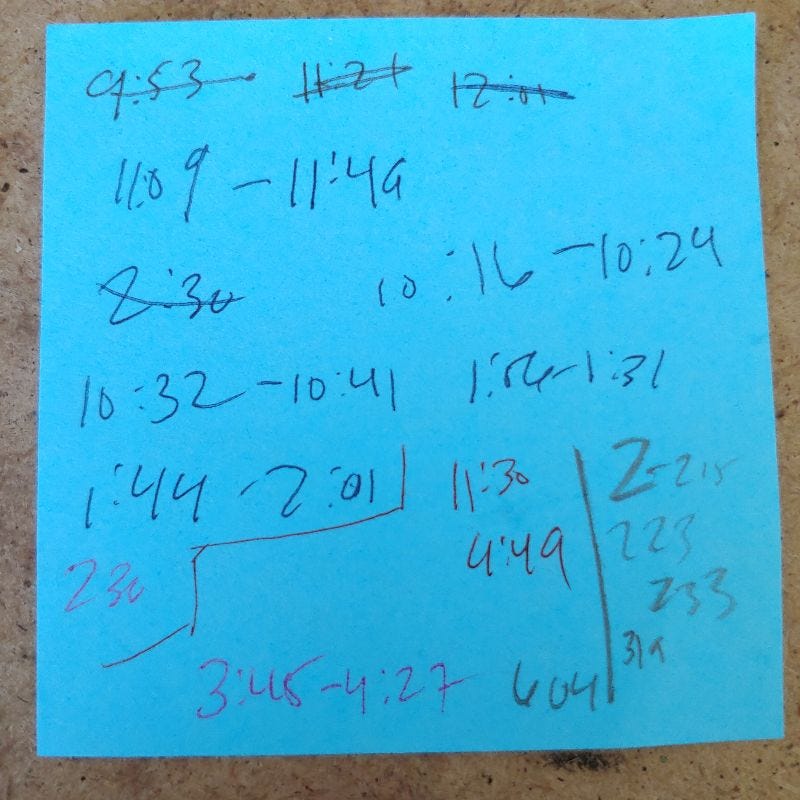 9:53 11:21 12:01
11:09 - 11:49
2:30 10:16 - 10:24
10:32 - 10:41 1:56-1:31
1:44 - 2:01 11:30 2-215
4:49 223
230 233
319
3:45-4:27 604